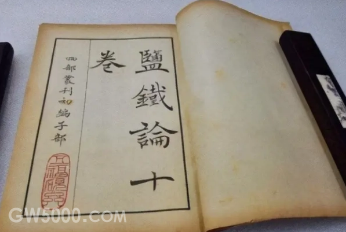 鹽鐵論十
卷
四部叢刊初編子部
GW5000.com